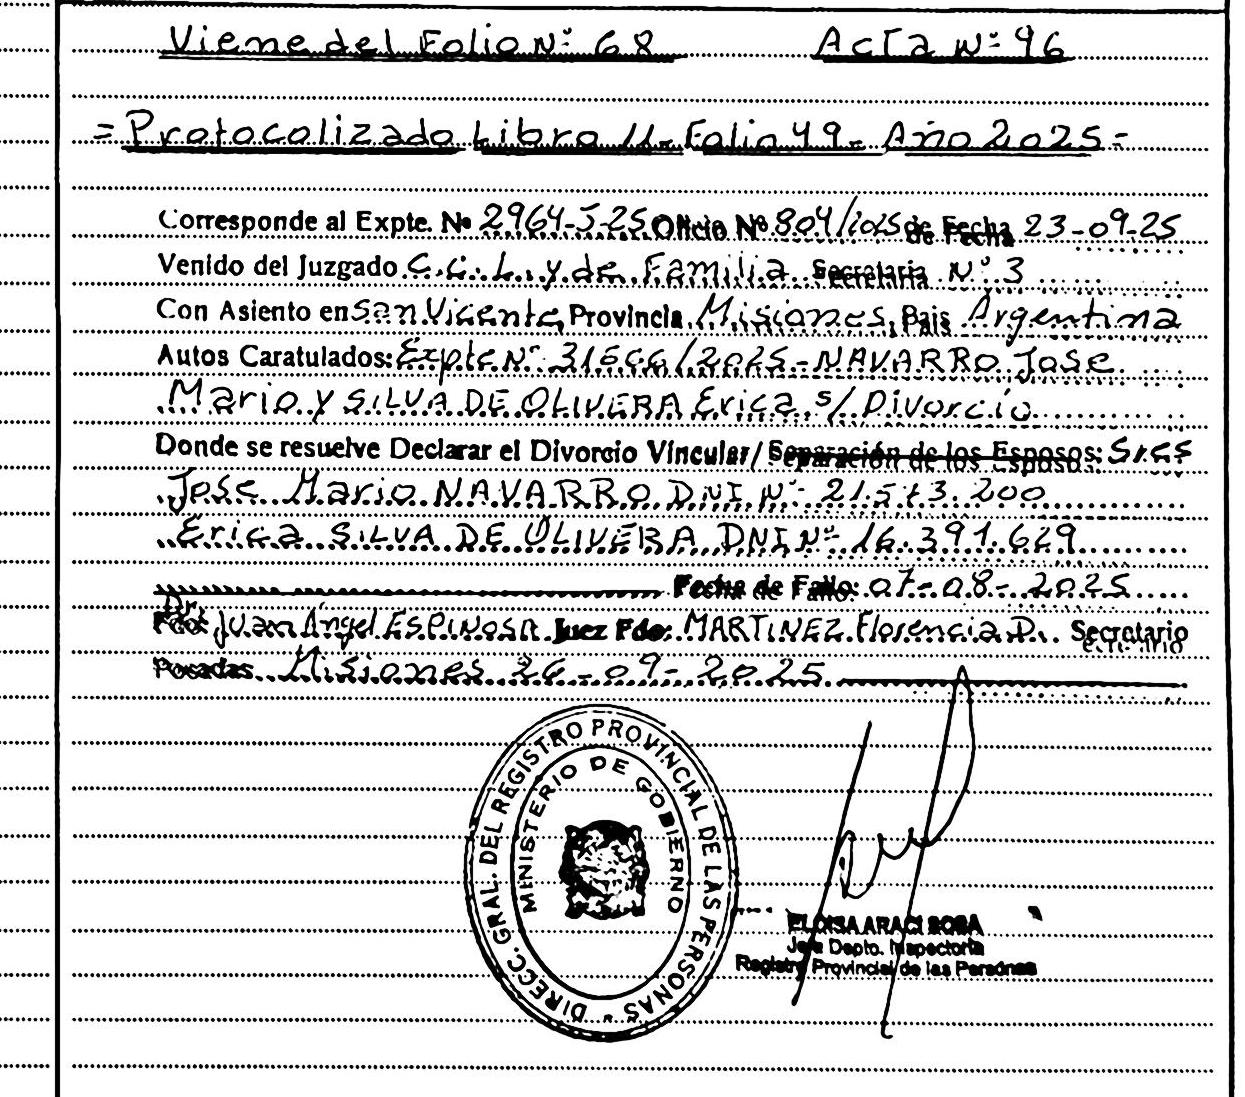 Viene del Folio Nº 68 Acta Nº 96
= Protocolizado Libro 11- Folio 49- Año 2025 =
Corresponde al Expte. Nº 2964-J-25 Oficio Nº 804/2025 de Fecha 23-09-25
Venido del Juzgado C.C.L. y de Familia Secretaria Nº 3
Con Asiento en San Vicente Provincia Misiones, Pais Argentina
Autos Caratulados: Expte Nº 31566/2025-NAVARRO Jose
Mario y SILVA DE OLIVERA Erica s/ Divorcio
Donde se resuelve Declarar el Divorcio Vincular/ Separación de los Esposos: Sres
Jose Mario NAVARRO DNI Nº 21.573.200
Erica SILVA DE OLIVERA DNI Nº 16.391.629
Fecha de Fallo: 07-08-2025
Dr. Juan Angel ESPINOSA Juez Fdo: MARTINEZ Florencia D. Secretario
Posadas Misiones 26-09-2025
DIRECC. GRAL. DEL REGISTRO PROVINCIAL DE LAS PERSONAS
MINISTERIO DE GOBIERNO
ELOISA ARACI SOSA
Jefa Depto. Inspectoria
Registro Provincial de las Personas